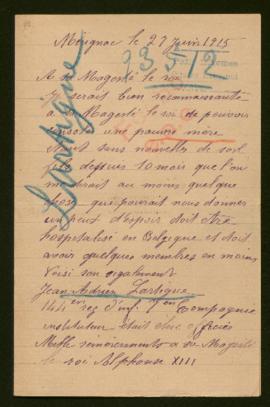 Mérignac le 27 juin 1915
23572
A sa Magesté le roi
Je serait bien reconnaissante
a sa Magesté le roi de pouvoir
une pauvre mère
étant sans nouvelles de son
fils depuis 10 mois que l'on
me dirait au moins quelque
chose qui pourrait nous donner
un peux d'espoir doit être
hospitalisé en Belgique et doit
avoir quelques membres en moins
Voisi son régalement
Jean Adrien Lartigue
144 em reg d'inf 7 em Compagnie
instituteur était élève officier
Mille remerciements a sa Magesté
le roi Alphonse XIII
Lartigue